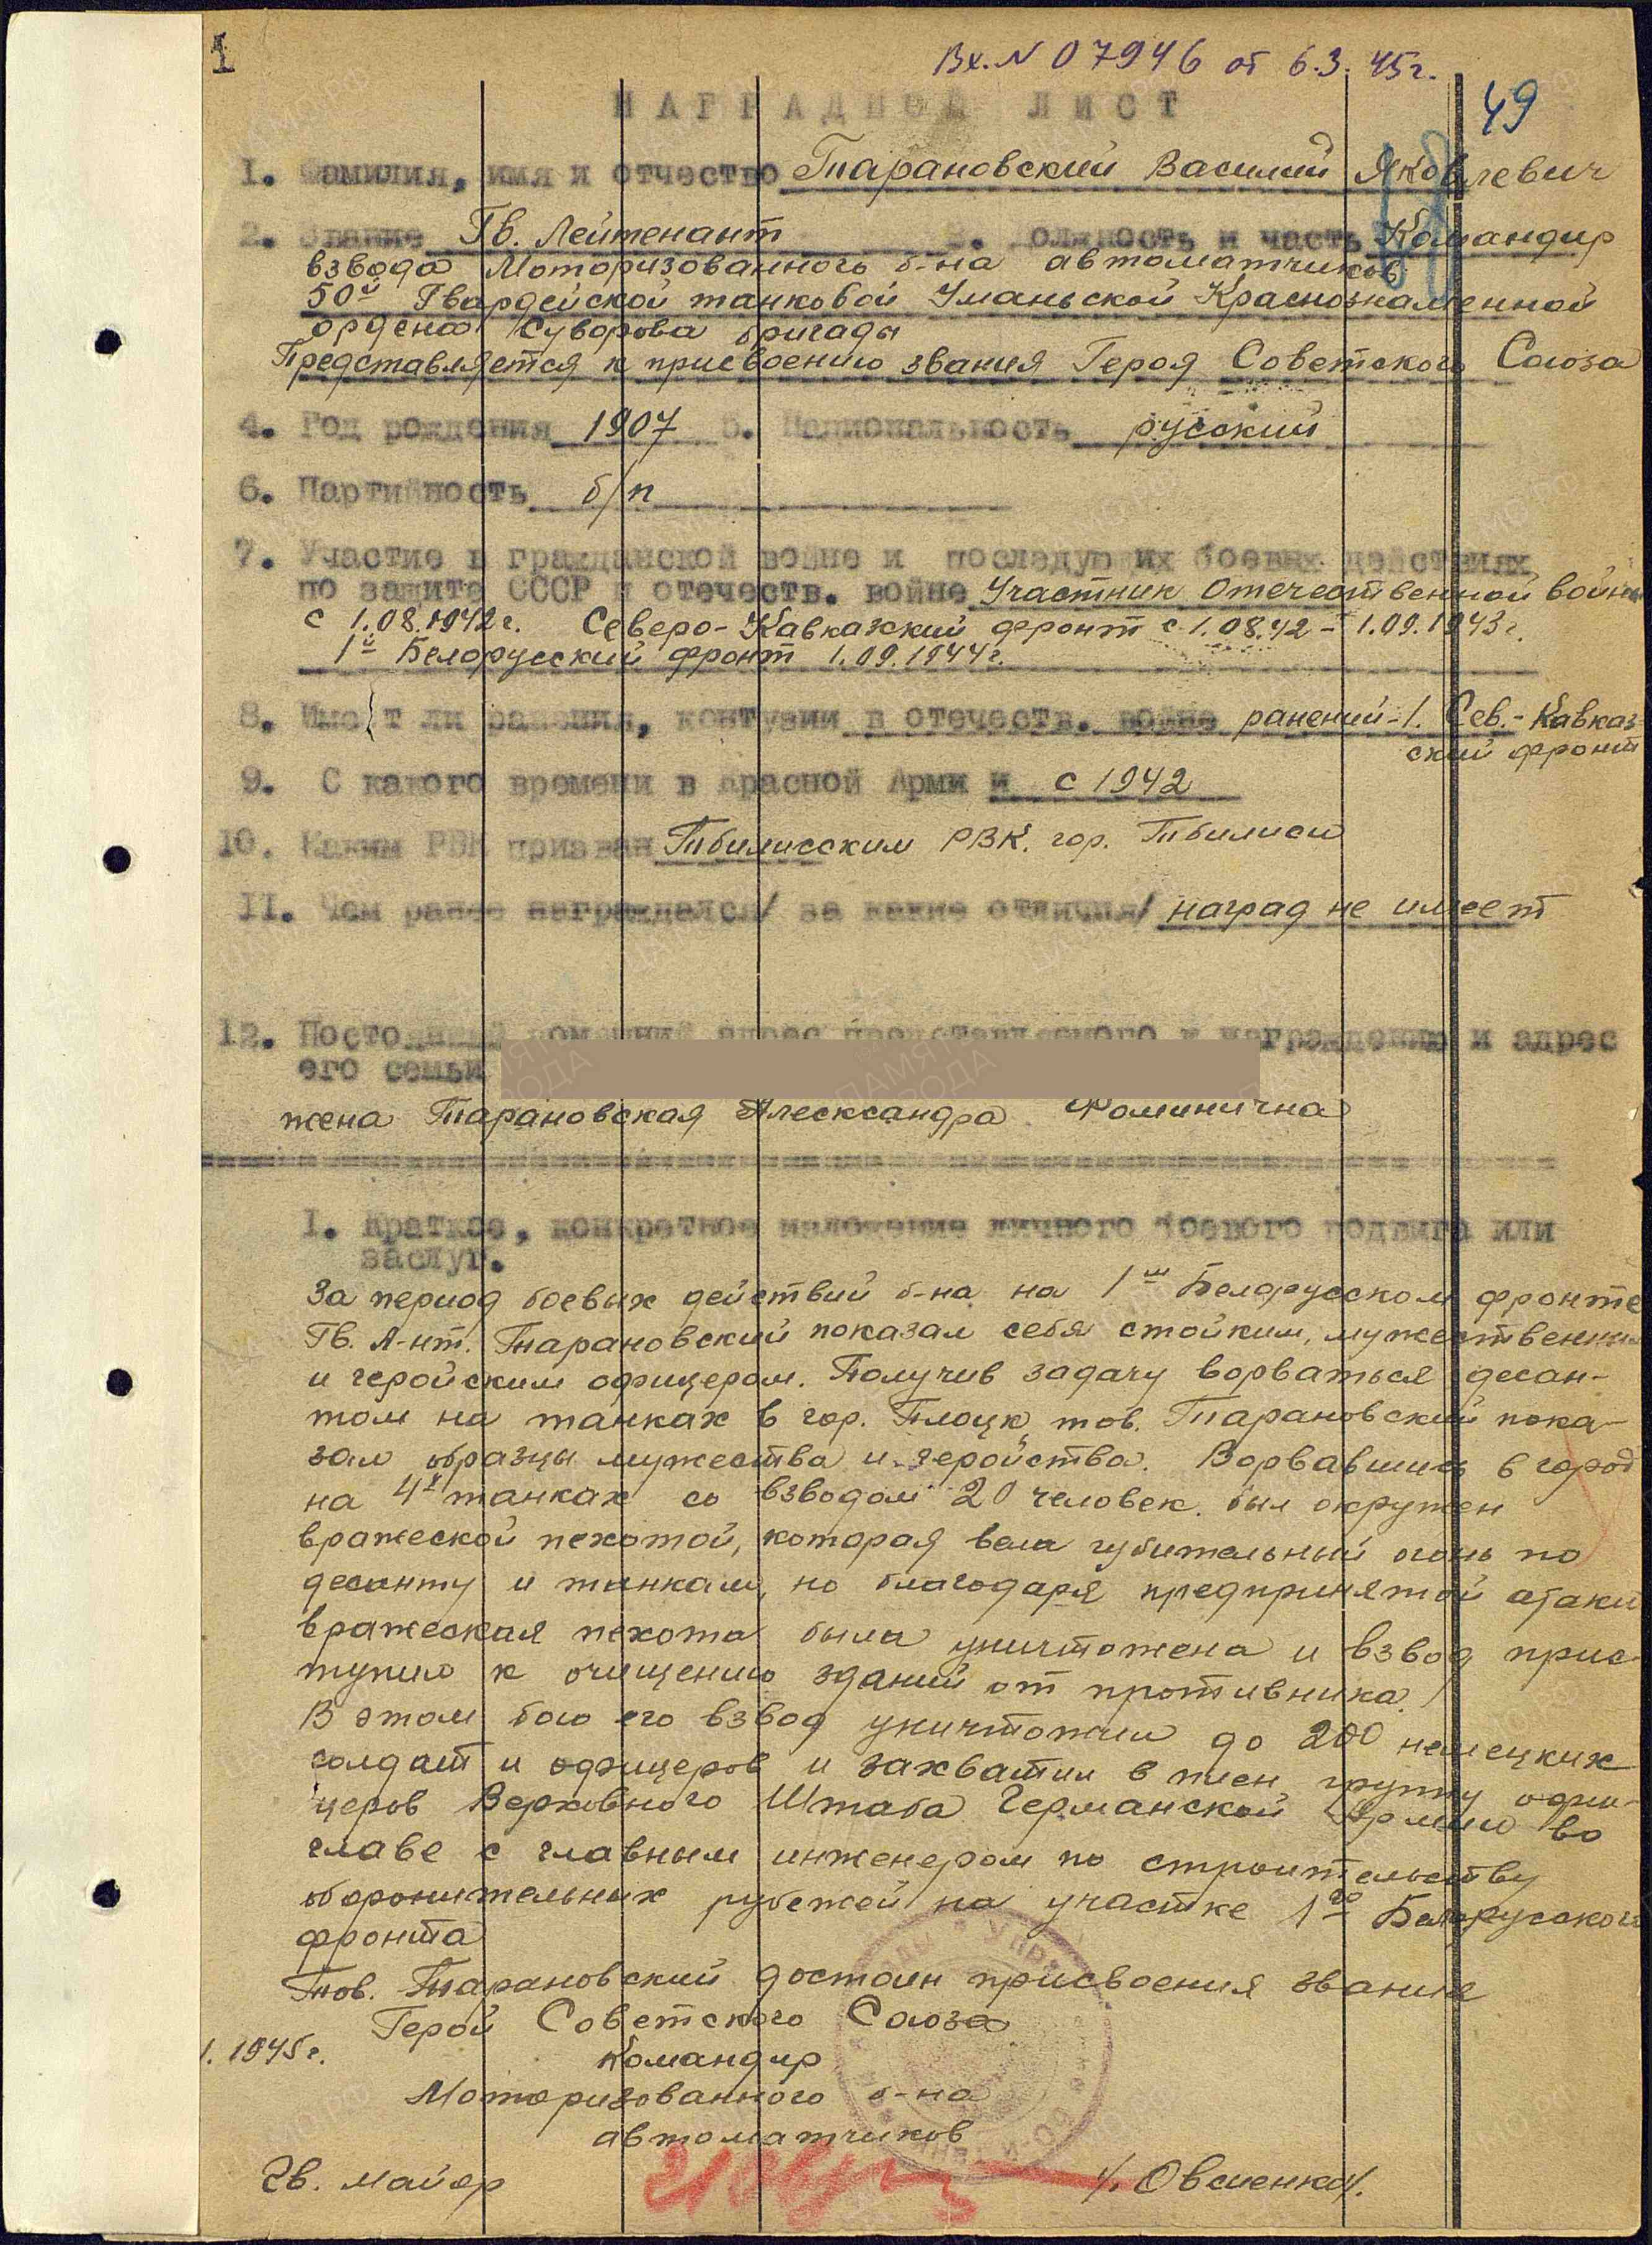 1
Вх. N 07946 от 6.3.45г.
49
НАГРАДНОЙ ЛИСТ
1. Фамилия, имя и отчество Тарановский Василий Яковлевич
2. Звание Гв. Лейтенант 3. Должность и часть Командир
взвода Моторизованного б-на автоматчиков
50й Гвардейской танковой Уманьской Краснознаменной
ордена Суворова бригады
Представляется к присвоению звания Героя Советского Союза
4. Год рождения 1907 5. Национальность русский
6. Партийность б/п
7. Участие в гражданской войне и последующих боевых действиях
по защите СССР и отечеств. войне Участник Отечественной войны
с 1.08.1942г. Северо-Кавказкий фронт с 1.08.42 - 1.09.1943г.
1й Белорусский фронт 1.09.1944г.
8. Имеет ли ранения, контузии в отечеств. войне ранений-1. Сев.-Кавказ
ский фронт
9. С какого времени в Красной Армии с 1942
10. Каким РВК призван Тбилисским РВК. гор. Тбилиси
11. Чем ранее награждался/ за какие отличия/ наград не имеет
12. Постоянный домашний адрес представляемого к награждению и адрес
его семьи
жена Тарановская Алесксандра Фоминична
1. Краткое, конкретное изложение личного боевого подвига или
заслуг.
За период боевых действий б-на на 1м Белорусском фронте
Гв. Л-нт. Тарановский показал себя стойким, мужественным
и геройским офицером. Получив задачу ворваться десан-
том на танках в гор. Плоцк, тов. Тарановский пока-
зал образцы мужества и геройства. Ворвавшись в город
на 4х танках со взводом 20 человек. был окружен
вражеской пехотой, которая вела губительный огонь по
десанту и танкам, но благодаря предпринятой атаки
вражеская пехота была уничтожена и взвод прис-
тупил к очищению зданий от противника.
В этом бою его взвод уничтожил до 200 немецких
солдат и офицеров и захватил в плен группу офи-
церов Верховного Штаба Германской Армии во
главе с главным инженером по строительству
оборонительных рубежей на участке 1го Белорусского
фронта
Тов. Тарановский достоин присвоения звания
Герой Советского Союза
1. 1945г.
Командир
Моторизованного б-на
автоматчиков
Гв. майор /. Овсиенко/.